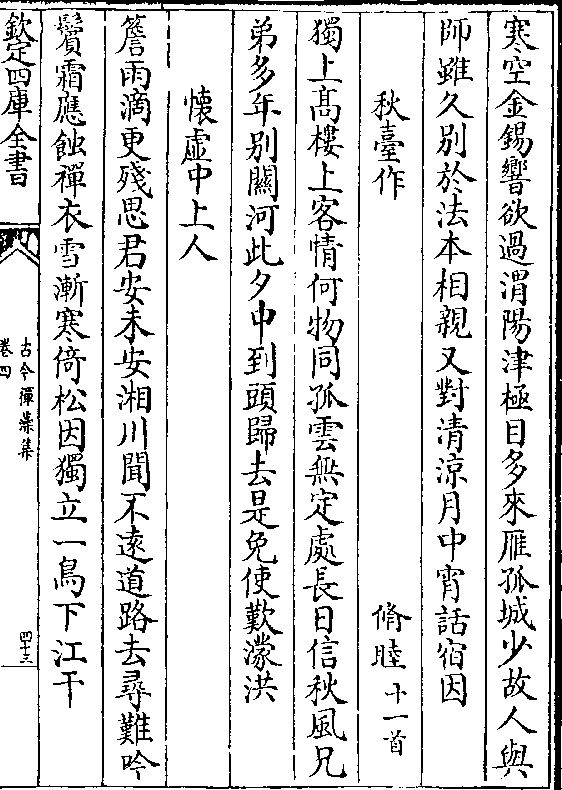 寒空金錫響欲過渭陽津極目多來雁孤城少故人與
師雖久別於法本相親又對清涼月中宵話宿因
秋臺作 脩睦十一首
獨上髙樓上客情何物同孤雲無定處長日信秋風兄
弟多年别關河此夕中到頭歸去是免使歎濛洪
懷虚中上人
簷雨滴更殘思君安未安湘川聞不遠道路去尋難吟
鬢霜應蝕禪衣雪漸寒倚松因獨立一鳥下江干
欽定四庫全書
古今禪藻集
卷四
四十三